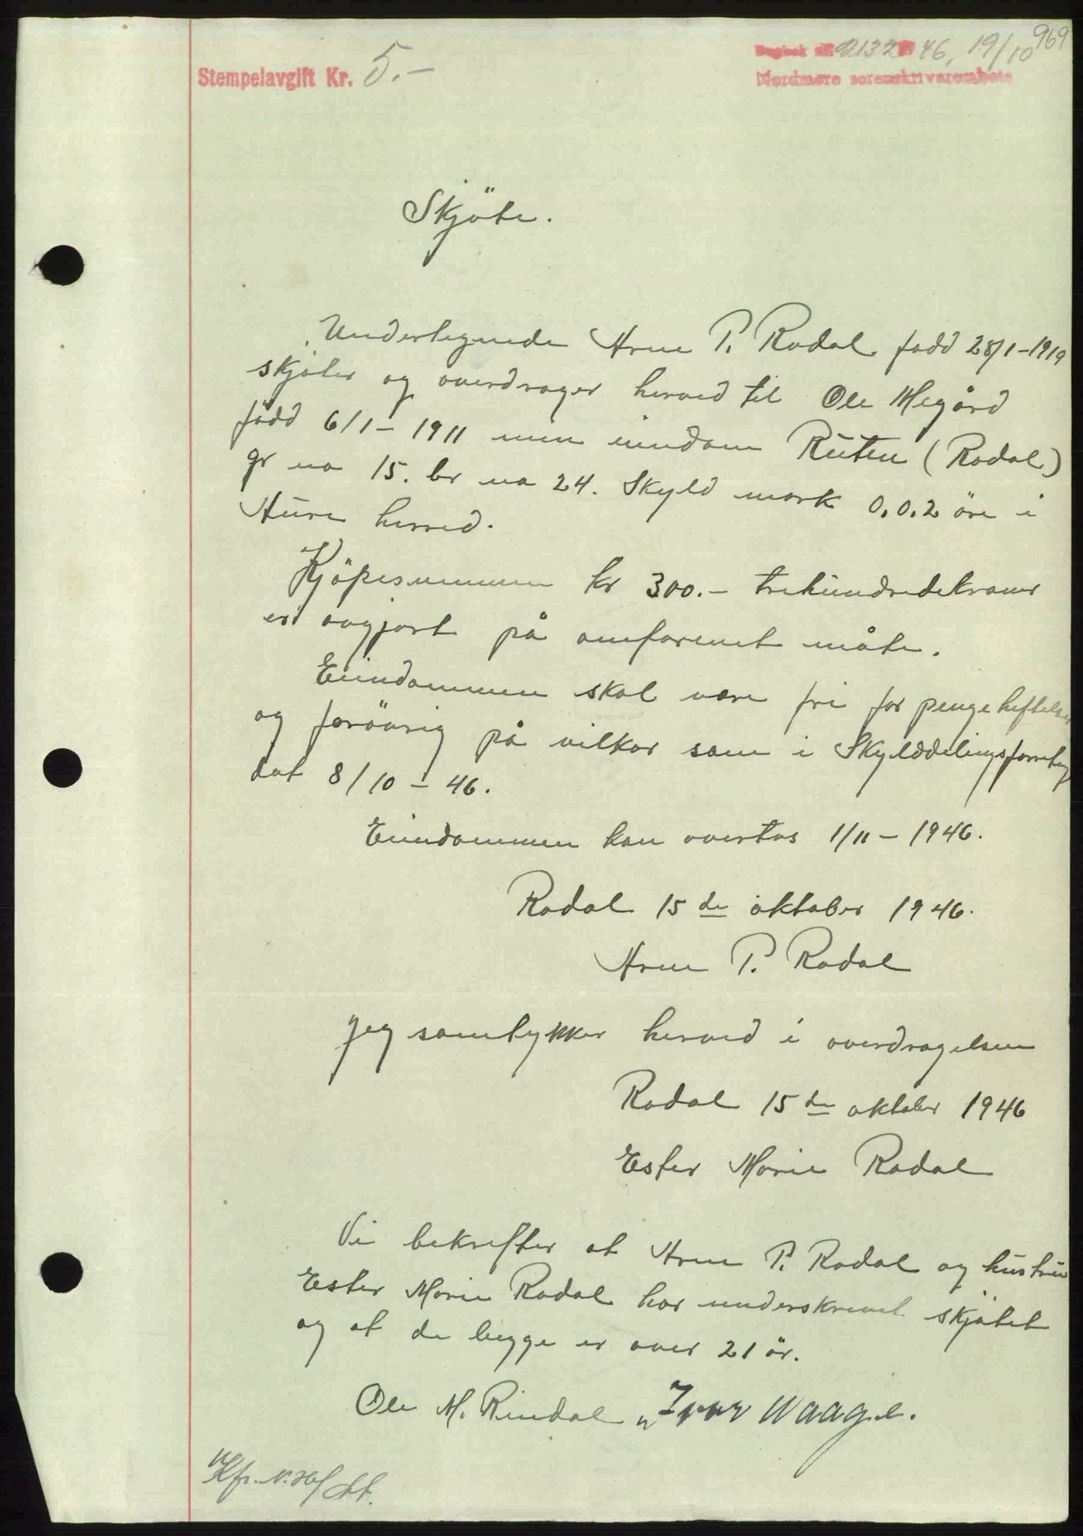 969
Stempelavgift Kr. 5.-
Dagbok nr. 2132 46, 19/10
Nordmøre sorenskriverembete
Skjöte.
Undertegnede Arne P. Rodal född 28/1-1919
skjöter og overdrager herved til Ole Megård
född 6/1-1911 min eiendom Rüten (Rodal)
gr no 15. br no 24. Skyld mark 0,0.2 öre i
Aure herred.
Kjöpesummen kr 300.- trehundredekroner
er avgjort på omforenet måte.
Eiendommen skal være fri for pengeheftelser
og forövrig på vilkår som i Skylddelingsforretng
dat 8/10-46.
Eiendommen kan overtas 1/11-1946.
Rodal 15de oktober 1946.
Arne P. Rodal
Jeg samtykker herved i overdragelsen
Rodal 15de oktober 1946
Ester Marie Rodal
Vi bekrefter at Arne P. Rodal og hustru
Ester Marie Rodal har underskrevet skjötet
og at de begge er over 21 år.
Ole M. Rindal Ivar Waagø.